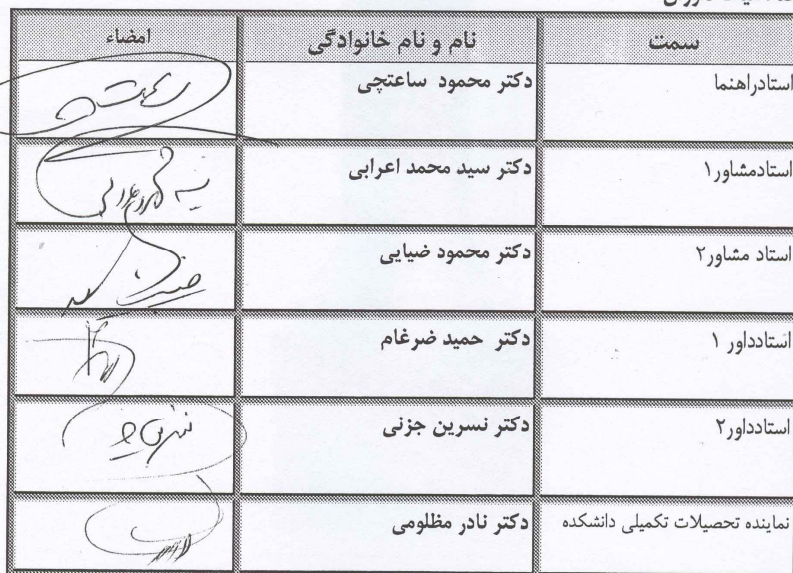 سمت نام و نام خانوادگی امضاء
استادراهنما دکتر محمود ساعتچی
استادمشاور۱ دکتر سید محمد اعرابی
استاد مشاور۲ دکتر محمود ضیایی
استادداور ۱ دکتر حمید ضرغام
استادداور۲ دکتر نسرین جزنی
نماینده تحصیلات تکمیلی دانشکده دکتر نادر مظلومی